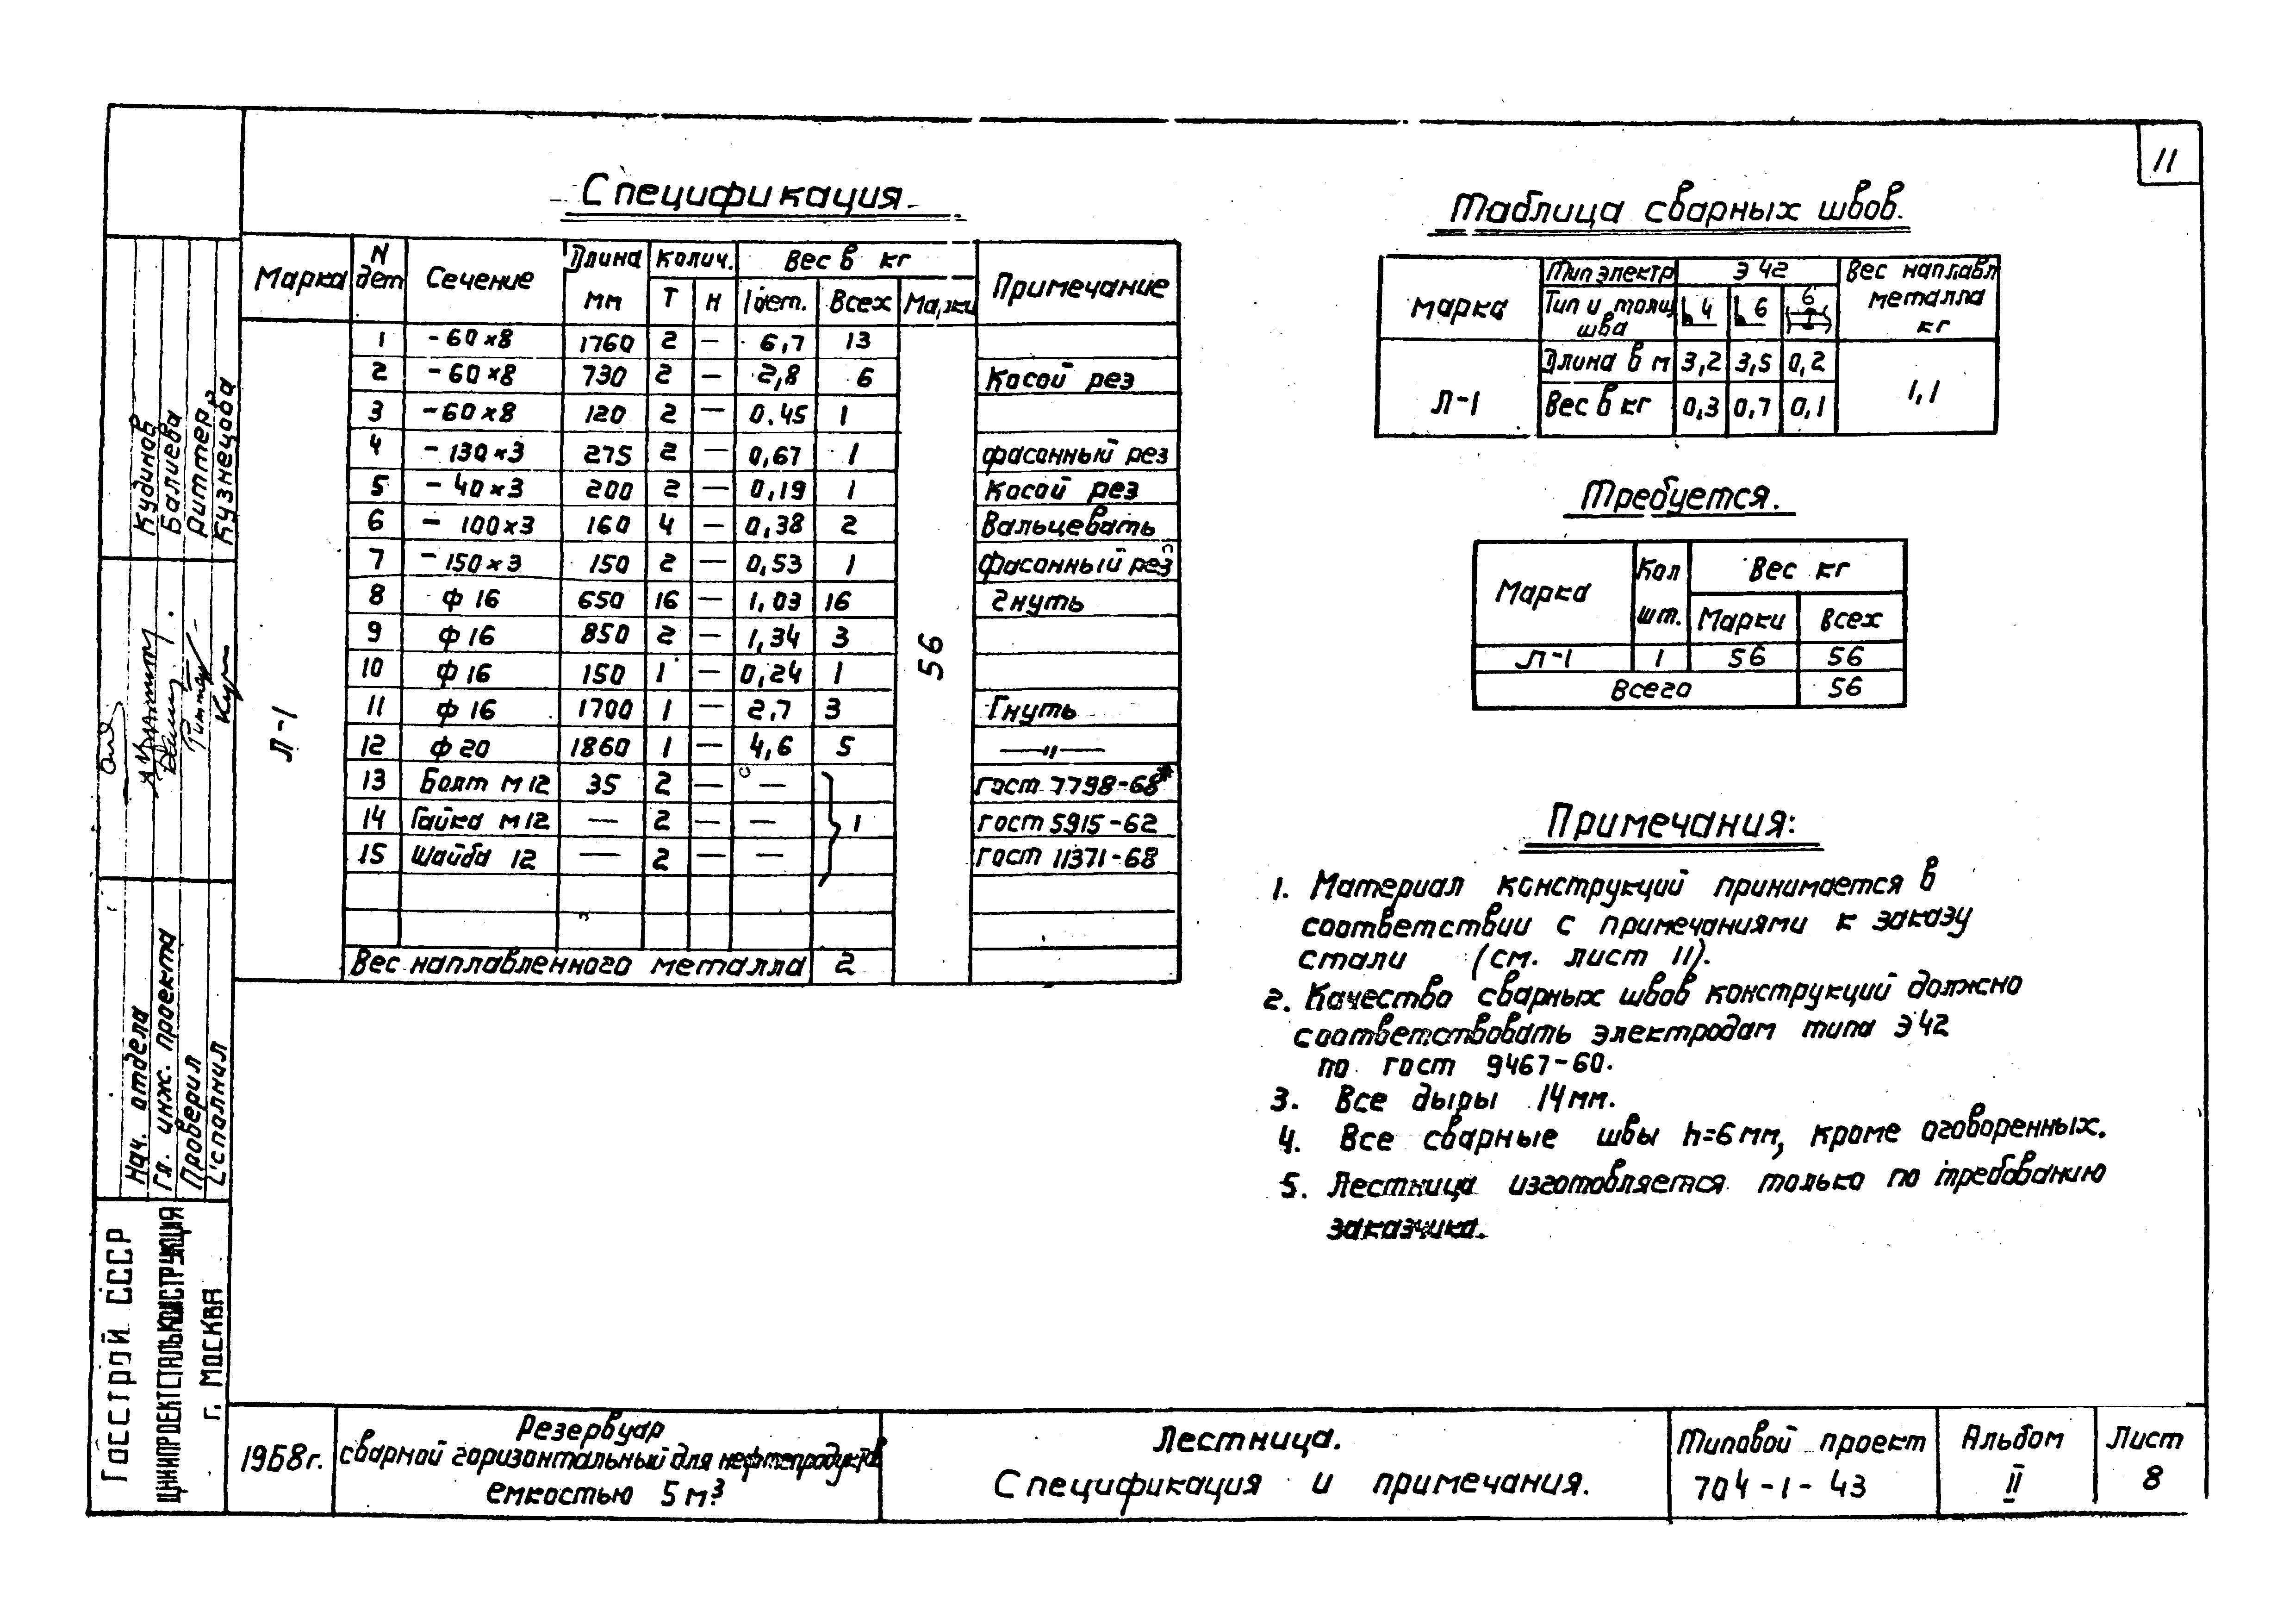 11
Спецификация
Марка | N дет | Сечение | Длина мм | Колич. Т | Н | Вес в кг 1 дет. | Всех | Марки | Примечание
Л-1
56
1 | -60×8 | 1760 | 2 | — | 6,7 | 13
2 | -60×8 | 730 | 2 | — | 2,8 | 6 | Косой рез
3 | -60×8 | 120 | 2 | — | 0.45 | 1
4 | -130×3 | 275 | 2 | — | 0,67 | 1 | фасонный рез
5 | -40×3 | 200 | 2 | — | 0,19 | 1 | Косой рез
6 | -100×3 | 160 | 4 | — | 0,38 | 2 | Вальцевать
7 | -150×3 | 150 | 2 | — | 0,53 | 1 | фасонный рез
8 | ф 16 | 650 | 16 | — | 1,03 | 16 | гнуть
9 | ф 16 | 850 | 2 | — | 1,34 | 3
10 | ф 16 | 150 | 1 | — | 0,24 | 1
11 | ф 16 | 1700 | 1 | — | 2,7 | 3 | Гнуть
12 | ф 20 | 1860 | 1 | — | 4,6 | 5 | —"—
13 | Болт М12 | 35 | 2 | — | — | гост 7798-68*
14 | Гайка М12 | — | 2 | — | — | 1 | гост 5915-62
15 | Шайба 12 | — | 2 | — | — | гост 11371-68
Вес наплавленного металла | 2
Таблица сварных швов.
марка | Тип электр | Э 42 | Вес наплавл металла кг
Тип и толщ шва | 4 | 6 | 6
Л-1 | Длина в м | 3,2 | 3,5 | 0,2 | 1,1
Вес в кг | 0,3 | 0,7 | 0,1
Требуется.
Марка | Кол шт. | Вес кг
Марки | Всех
Л-1 | 1 | 56 | 56
Всего | 56
Примечания:
1. Материал конструкций принимается в
соответствии с примечаниями к заказу
стали (см. лист 11).
2. Качество сварных швов конструкций должно
соответствовать электродам типа Э42
по гост 9467-60.
3. Все дыры 14мм.
4. Все сварные швы h=6мм, кроме оговоренных.
5. Лестница изготовляется только по требованию
заказчика.
Кудинов
Валиева
Риттер
Кузнецова
Нач. отдела
Гл. инж. проекта
Проверил
Исполнил
Госстрой СССР
ЦНИИПРОЕКТСТАЛЬКОНСТРУКЦИЯ
г. МОСКВА
1968г.
Резервуар
сварной горизонтальный для нефтепродуктов
емкостью 5м³
Лестница.
Спецификация и примечания.
Типовой проект
704-1-43
Альбом
II
Лист
8